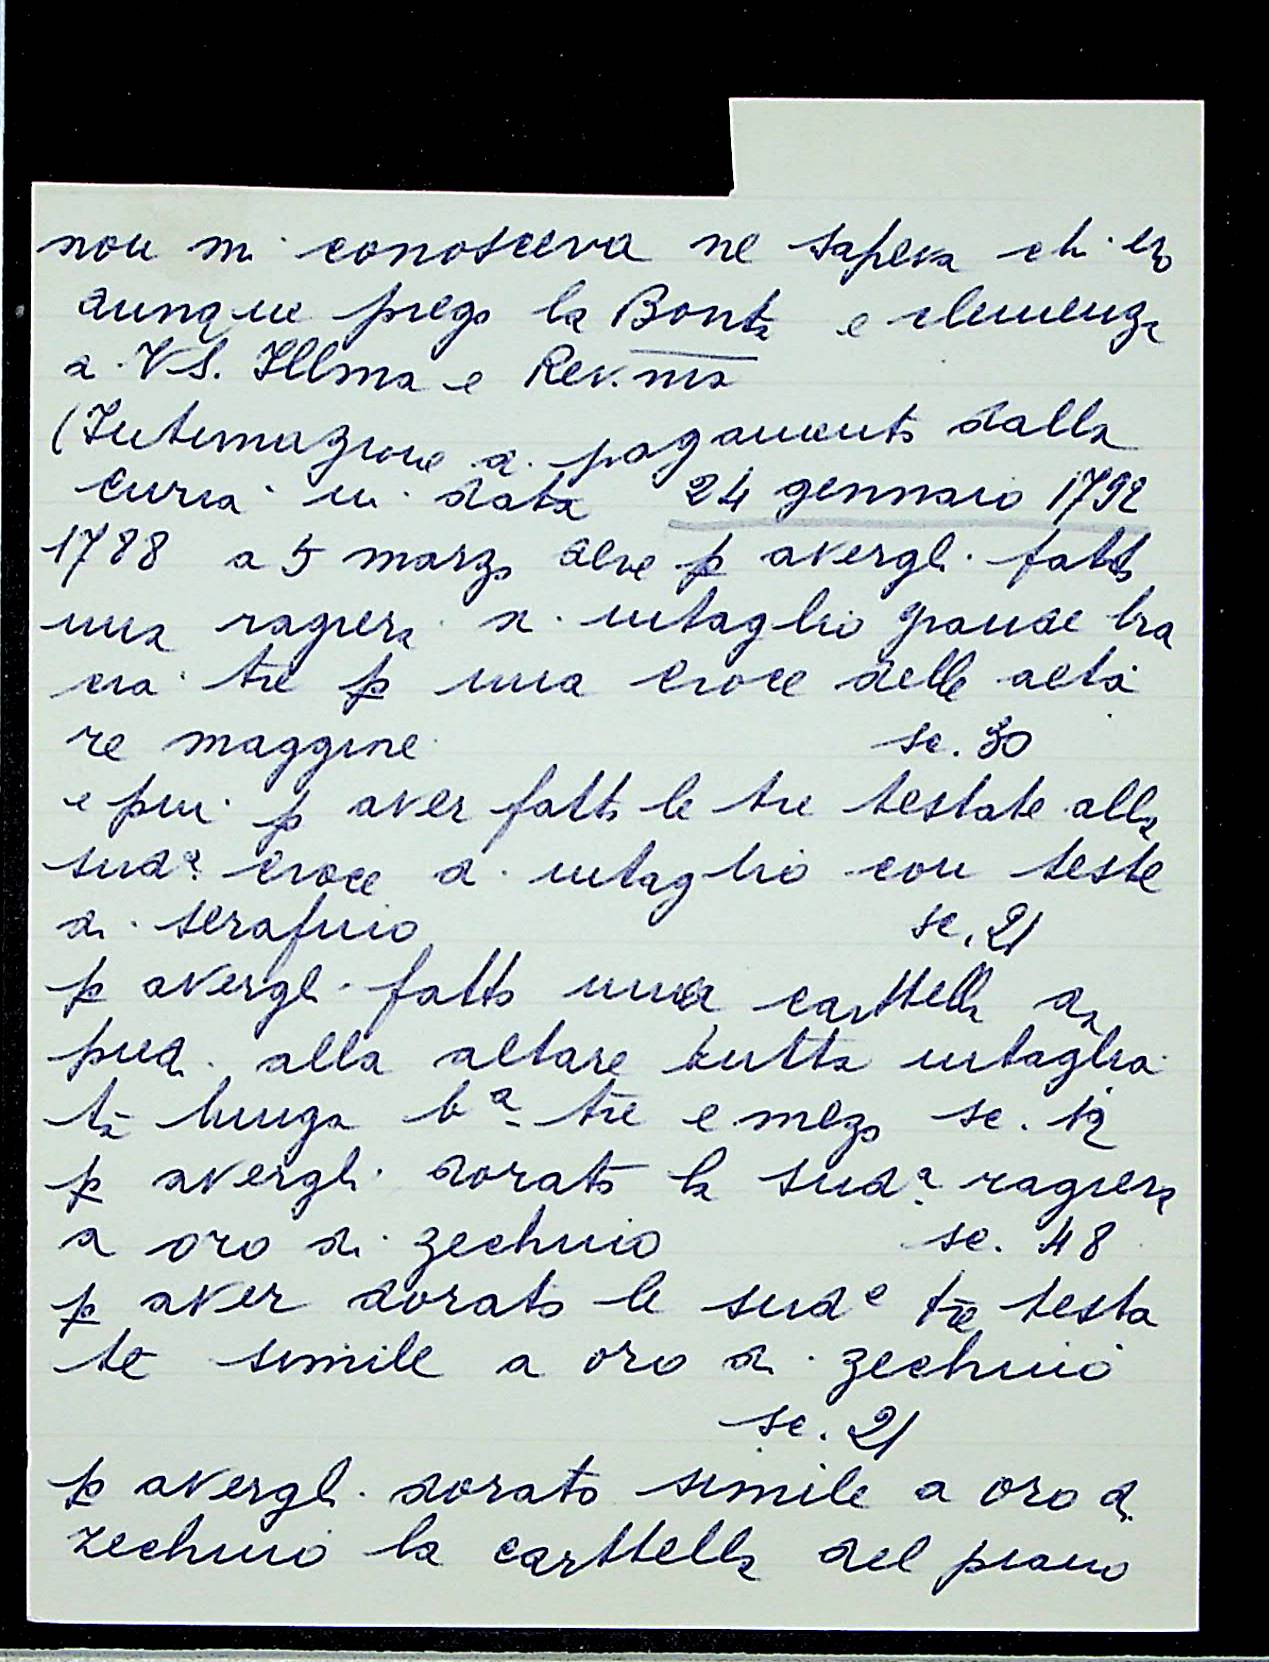 non mi conosceva ne sapeva chi ero
dunque prego la Bontà e clemenza
a VS. Illma e Rev.ma
(Intimazione di pagamento dalla
curia in data 24 gennaio 1792
1788 a 5 marzo deve p avergli fatto
una ragiera di intaglio grande bra
cia tre p una croce delle alta
re maggire sc. 30
e piu p aver fatto le tre testate alla
sudª croce di intaglio con teste
di serafino sc. 21
p avergli fatto una carttella da
piedi alla altare tutta intaglia
ta lunga bª tre e mezo sc. 12
p avergli dorato la sudª ragiera
a oro di zechino sc. 48
p aver dorato le sudᵉ tre testa
te simile a oro di zechino
sc. 21
p avergli dorato simile a oro di
zechino la carttella del piano